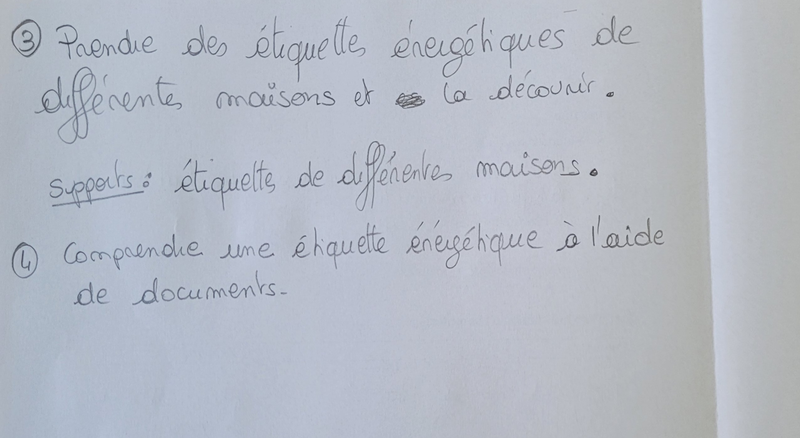 ③ Prendre des étiquettes énergétiques de
différentes maisons et la découvrir.
Supports : étiquette de différentes maisons.
④ Comprendre une étiquette énérgétique à l'aide
de documents.